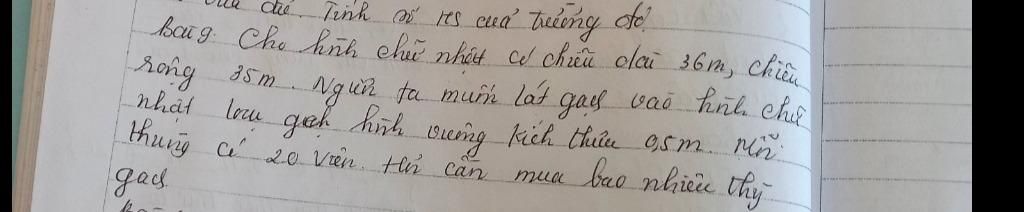 của đó. Tính số HS của trường đó?
Bài 9. Cho hình chữ nhật có chiều dài 36m, chiều
rộng 25m. Người ta muốn lát gạch vào hình chữ
nhật loại gạch hình vuông kích thước 0,5m. Mỗi
thùng có 20 viên. Hỏi cần mua bao nhiêu thùng
gạch